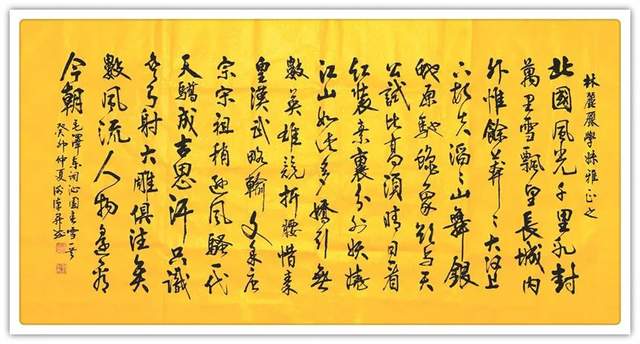 林麗嚴學妹雅正之
北國風光千里冰封
萬里雪飄望長城內
外惟餘莽々大河上
下頓失滔々山舞銀
蛇原馳蠟象欲與天
公試比高須晴日看
紅裝素裹分外妖嬈
江山如此多嬌引無
數英雄競折腰惜秦
皇漢武略輸文采唐
宗宋祖稍遜風騷一代
天驕成吉思汗只識
彎弓射大雕俱往矣
數風流人物還看
今朝
毛澤東詞沁園春雪一首
癸卯仲夏